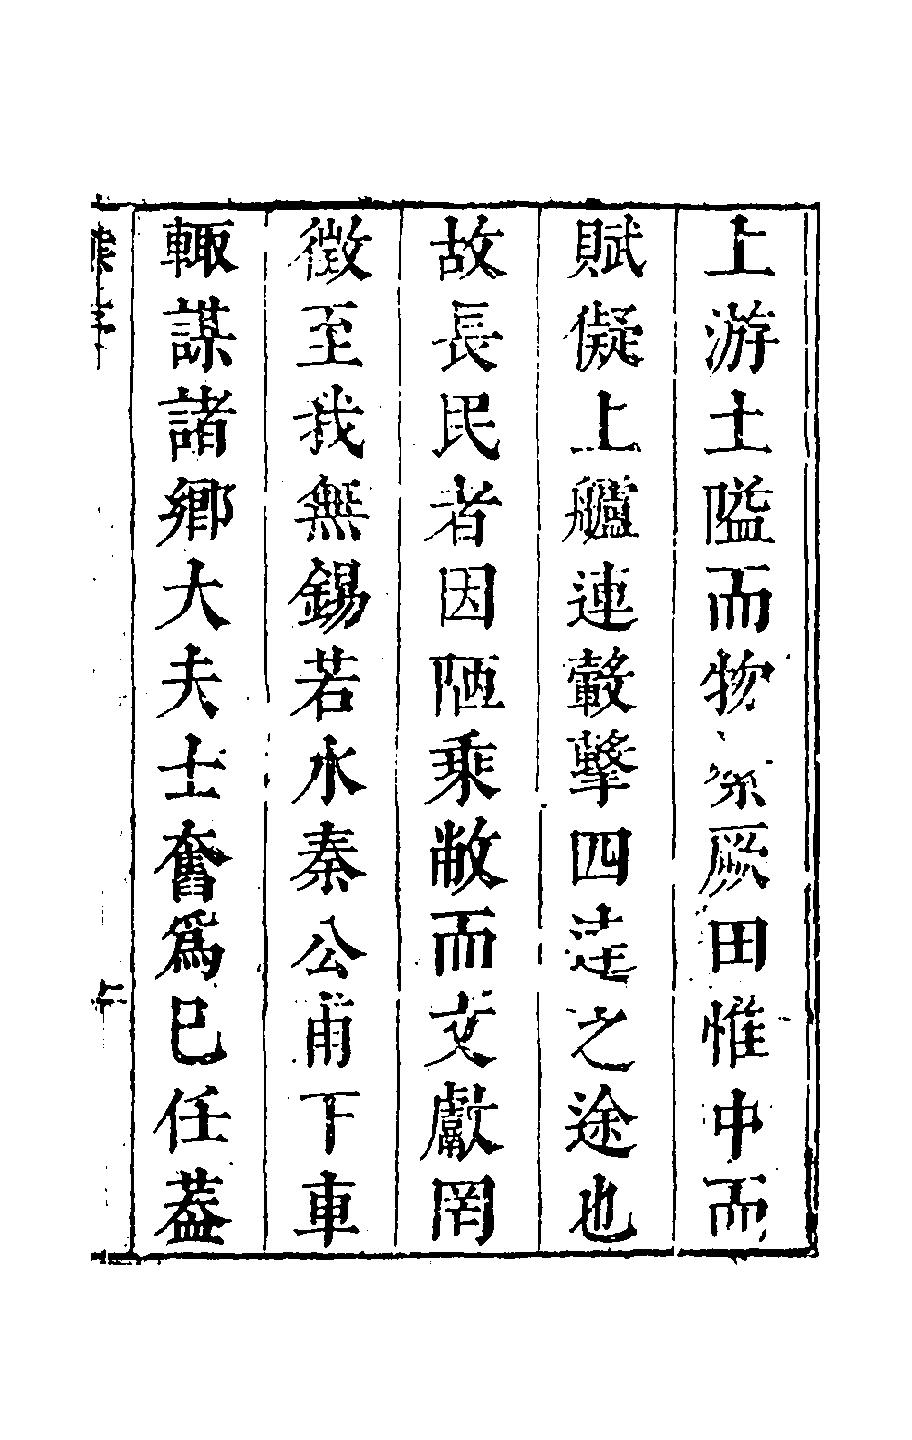 上游土隘而物厥田惟中而
賦儗上艫連轂擊四逵之途也
故長民者因陋乘敝而文獻罔
徵至我無錫若水秦公甫下車
輒謀諸鄉大夫士奮爲巳任蓋